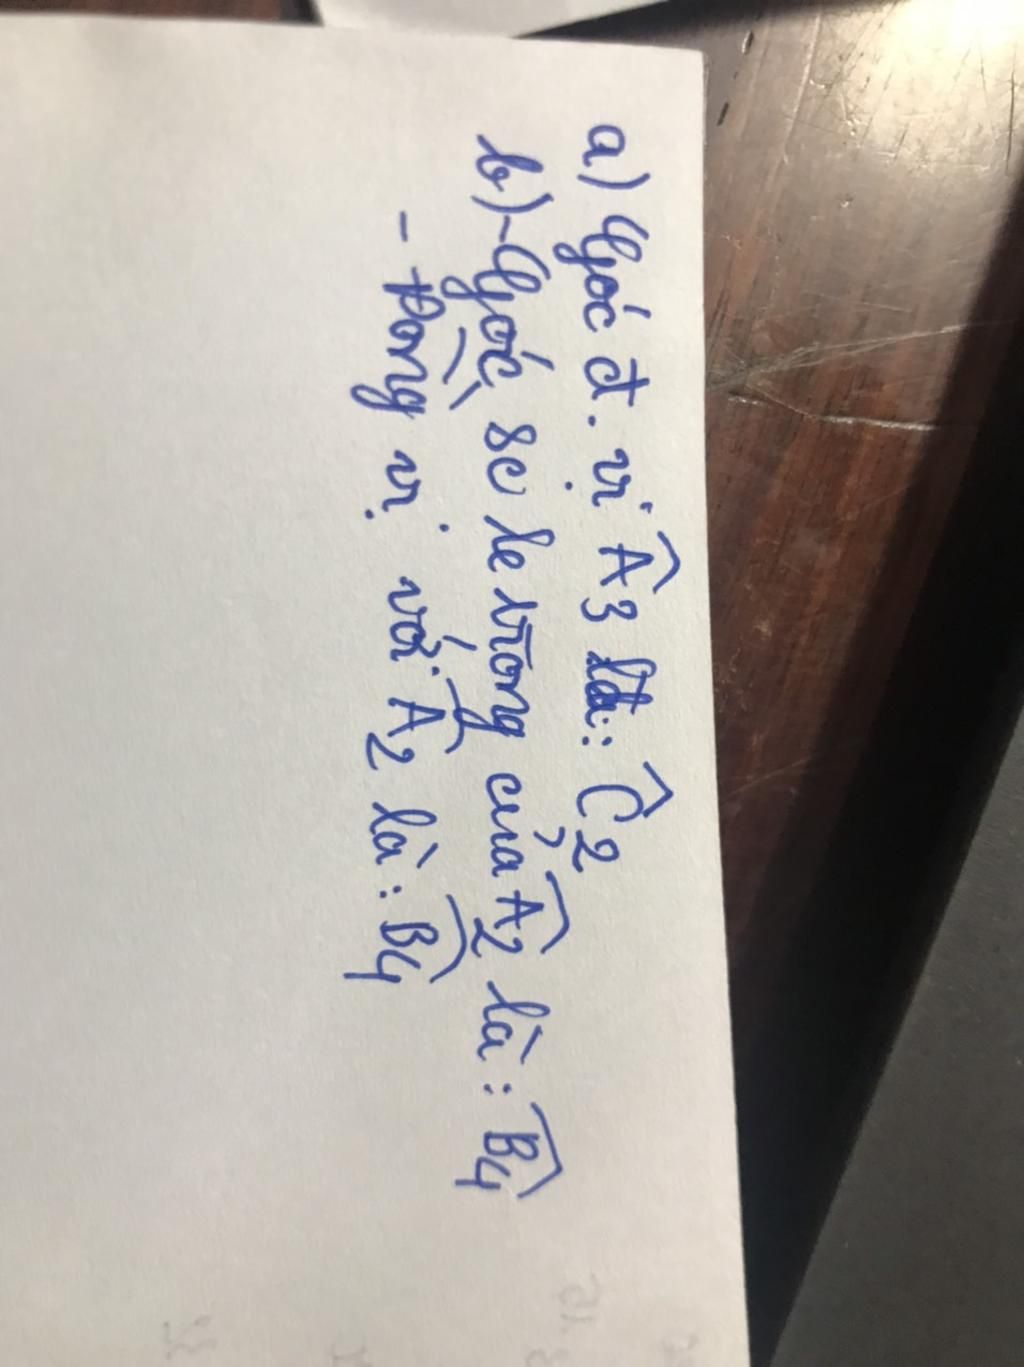 a) Góc đ. vị Â3 là: Ĉ2
b) - Góc so le trong của Â2 là: B̂4
- Đồng vị với Â2 là: B̂4